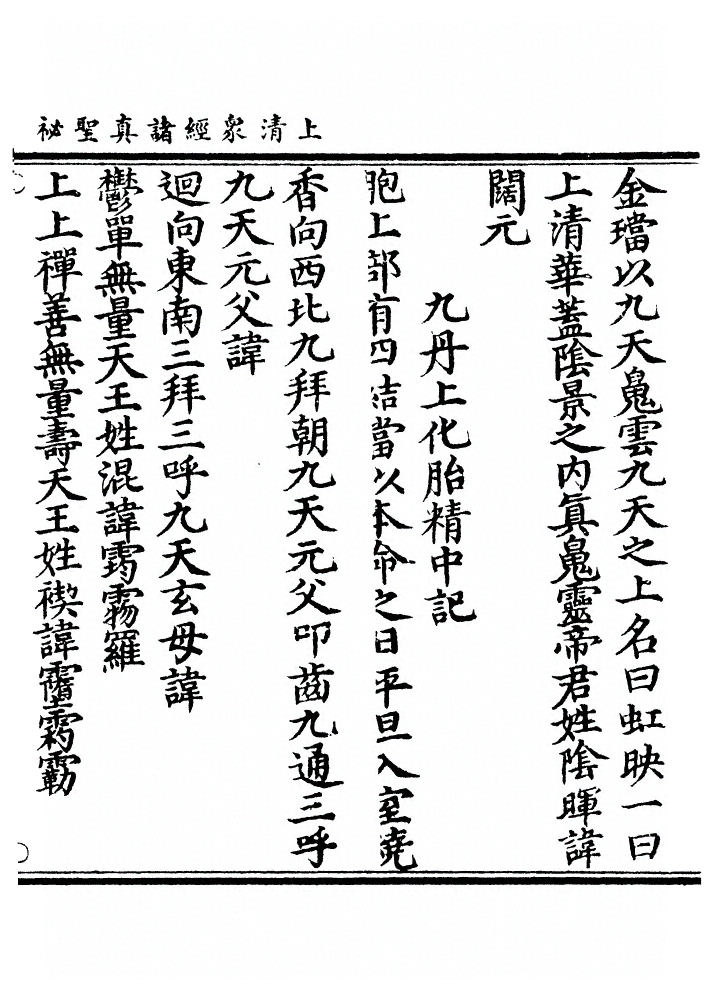 上清衆經諸真聖祕
金璫以九天雲九天之上名曰虹映一曰
上清華蓋陰景之内真靈帝君姓陰暉諱
闊元
九丹上化胎精中記
胞上部有四結當以本命之日平旦入室燒
香向西北九拜朝九天元父叩齒九通三呼
九天元父諱
迴向東南三拜三呼九天玄母諱
鬱單無量天王姓混諱羅
上上禪善無量壽天王姓禊諱